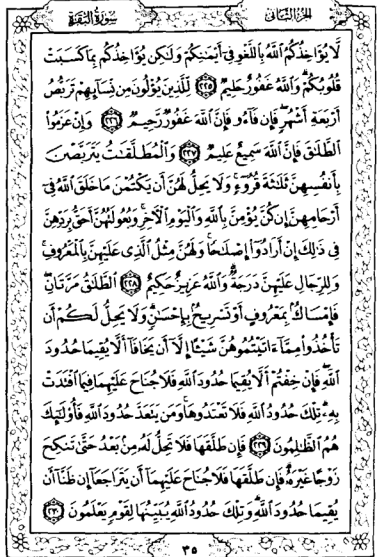 الجزء الثاني
سورة البقرة
لَّا يُؤَاخِذُكُمُ ٱللَّهُ بِٱللَّغْوِ فِىٓ أَيْمَٰنِكُمْ وَلَٰكِن يُؤَاخِذُكُم بِمَا كَسَبَتْ
قُلُوبُكُمْ وَٱللَّهُ غَفُورٌ حَلِيمٌ ٢٢٥ لِّلَّذِينَ يُؤْلُونَ مِن نِّسَآئِهِمْ تَرَبُّصُ
أَرْبَعَةِ أَشْهُرٍ فَإِن فَآءُو فَإِنَّ ٱللَّهَ غَفُورٌ رَّحِيمٌ ٢٢٦ وَإِنْ عَزَمُوا۟
ٱلطَّلَٰقَ فَإِنَّ ٱللَّهَ سَمِيعٌ عَلِيمٌ ٢٢٧ وَٱلْمُطَلَّقَٰتُ يَتَرَبَّصْنَ
بِأَنفُسِهِنَّ ثَلَٰثَةَ قُرُوٓءٍ وَلَا يَحِلُّ لَهُنَّ أَن يَكْتُمْنَ مَا خَلَقَ ٱللَّهُ فِىٓ
أَرْحَامِهِنَّ إِن كُنَّ يُؤْمِنَّ بِٱللَّهِ وَٱلْيَوْمِ ٱلْءَاخِرِ وَبُعُولَتُهُنَّ أَحَقُّ بِرَدِّهِنَّ
فِى ذَٰلِكَ إِنْ أَرَادُوٓا۟ إِصْلَٰحًا وَلَهُنَّ مِثْلُ ٱلَّذِى عَلَيْهِنَّ بِٱلْمَعْرُوفِ
وَلِلرِّجَالِ عَلَيْهِنَّ دَرَجَةٌ وَٱللَّهُ عَزِيزٌ حَكِيمٌ ٢٢٨ ٱلطَّلَٰقُ مَرَّتَانِ
فَإِمْسَاكٌۢ بِمَعْرُوفٍ أَوْ تَسْرِيحٌۢ بِإِحْسَٰنٍ وَلَا يَحِلُّ لَكُمْ أَن
تَأْخُذُوا۟ مِمَّآ ءَاتَيْتُمُوهُنَّ شَيْـًٔا إِلَّآ أَن يَخَافَآ أَلَّا يُقِيمَا حُدُودَ
ٱللَّهِ فَإِنْ خِفْتُمْ أَلَّا يُقِيمَا حُدُودَ ٱللَّهِ فَلَا جُنَاحَ عَلَيْهِمَا فِيمَا ٱفْتَدَتْ
بِهِۦ تِلْكَ حُدُودُ ٱللَّهِ فَلَا تَعْتَدُوهَا وَمَن يَتَعَدَّ حُدُودَ ٱللَّهِ فَأُو۟لَٰٓئِكَ
هُمُ ٱلظَّٰلِمُونَ ٢٢٩ فَإِن طَلَّقَهَا فَلَا تَحِلُّ لَهُۥ مِنۢ بَعْدُ حَتَّىٰ تَنكِحَ
زَوْجًا غَيْرَهُۥ فَإِن طَلَّقَهَا فَلَا جُنَاحَ عَلَيْهِمَآ أَن يَتَرَاجَعَآ إِن ظَنَّآ أَن
يُقِيمَا حُدُودَ ٱللَّهِ وَتِلْكَ حُدُودُ ٱللَّهِ يُبَيِّنُهَا لِقَوْمٍ يَعْلَمُونَ ٢٣٠
٣٥